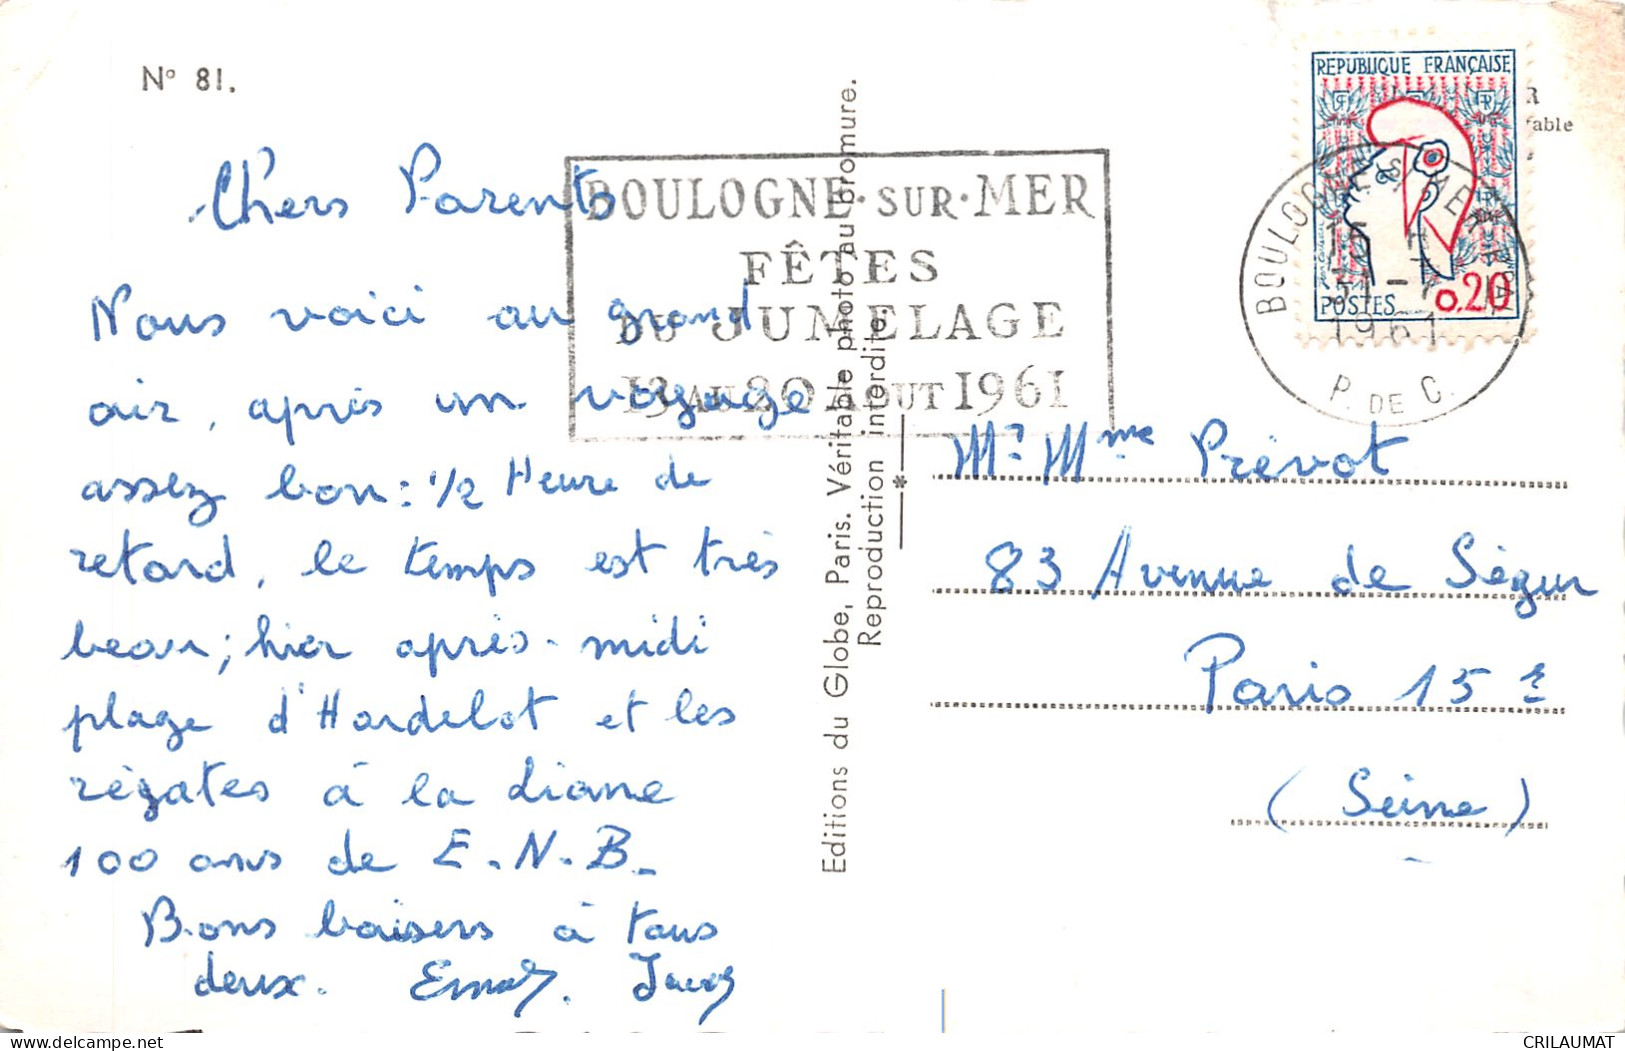 N° 81.
Chers Parents
Nous voici au grand
air, après un voyage
assez bon : 1/2 Heure de
retard, le temps est très
beau ; hier après-midi
plage d'Hardelot et les
régates à la Liane
100 ans de E.N.B.
Bons baisers à tous
deux.
BOULOGNE·SUR·MER
FÊTES
DU JUMELAGE
13 AU 20 AOUT 1961
Editions du Globe, Paris. Véritable photo au bromure.
Reproduction interdite.
REPUBLIQUE FRANÇAISE
POSTES 0.20
BOULOGNE S. MER
1961
P. DE C.
Mr Mme Prévot
83 Avenue de Ségur
Paris 15e
(Seine)
CRILAUMAT